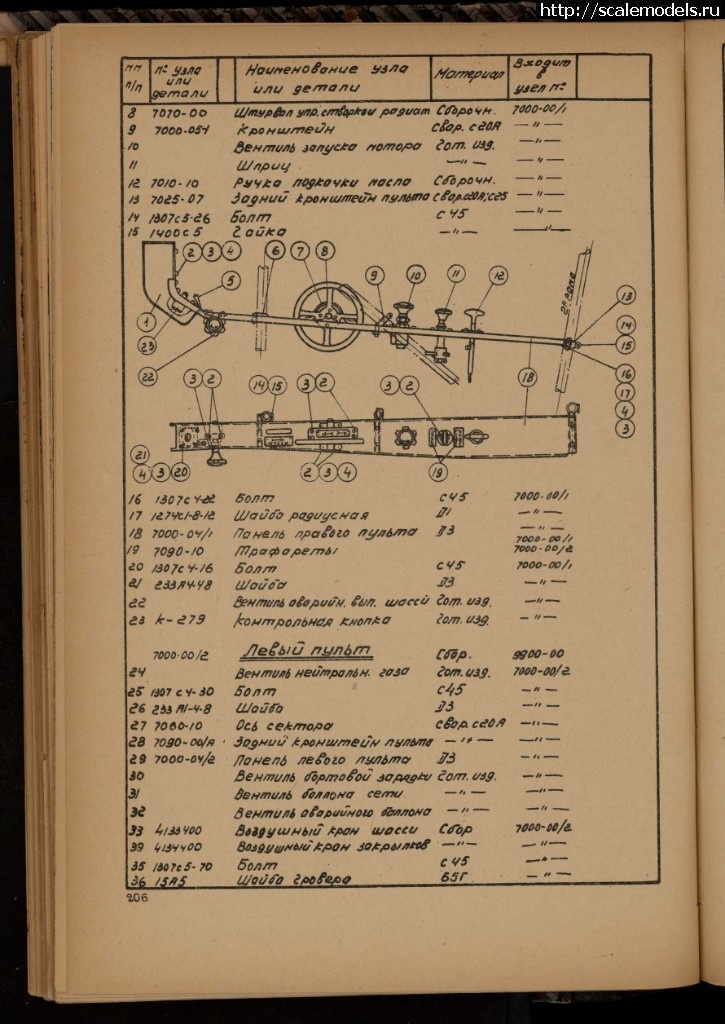 http://scalemodels.ru
№№ п/п № узла или детали Наименование узла или детали Материал Входит в узел №
8 7070-00 Штурвал упр. створкой радиат Сборочн. 7000-00/1
9 7000-054 Кронштейн Свар. с20А —"—
10 Вентиль запуска мотора Гот. изд. —"—
11 Шприц —"— —"—
12 7010-10 Ручка подкачки масла Сборочн. —"—
13 7025-07 Задний кронштейн пульта Свар. с20А; с25 —"—
14 1307с5-26 Болт с45 —"—
15 1400с5 Гайка —"— —"—
2 3 4 6 7 8
5 9 10 11 12
2я рама
1 13
23 14
15
22 3 2 14 15 3 2 3 2 18 16
17
4
3
21
4 3 20 2 3 4 19
16 1307с4-22 Болт с45 7000-00/1
17 1274с1-8-12 Шайба радиусная Д1 —"—
18 7000-04/1 Панель правого пульта Д3 —"—
19 7090-10 Трафареты 7000-00/1 7000-00/2
20 1307с4-16 Болт с45 7000-00/1
21 233А4-48 Шайба Д3 —"—
22 Вентиль аварийн. вып. шасси Гот. изд. —"—
23 К-279 Контрольная кнопка Гот. изд. —"—
7000-00/2 Левый пульт Сбор. 9900-00
24 Вентиль нейтральн. газа Гот. изд. 7000-00/2
25 1307с4-30 Болт с45 —"—
26 233А1-4-8 Шайба Д3 —"—
27 7060-10 Ось сектора свар. с20А —"—
28 7090-00/А Задний кронштейн пульта —"— —"—
29 7000-04/2 Панель левого пульта Д3 —"—
30 Вентиль бортовой зарядки Гот. изд. —"—
31 Вентиль баллона сети —"— —"—
32 Вентиль аварийного баллона —"— —"—
33 4133400 Воздушный кран шасси Сбор 7000-00/2
39 4134400 Воздушный кран закрылков —"— —"—
35 1307с5-70 Болт с45 —"—
36 15А5 Шайба гровера 65Г —"—
206